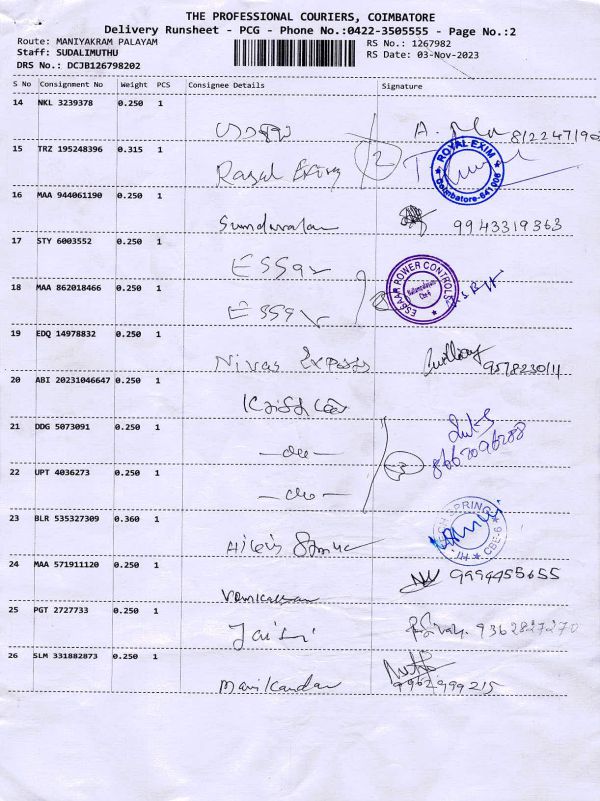 THE PROFESSIONAL COURIERS, COIMBATORE
Delivery Runsheet - PCG - Phone No.:0422-3505555 - Page No.:2
Route: MANIYAKRAM PALAYAM
RS No.: 1267982
Staff: SUDALIMUTHU
RS Date: 03-Nov-2023
DRS No.: DCJB126798202
S No Consignment No Weight PCS Consignee Details Signature
14 NKL 3239378 0.250 1
A.
15 TRZ 195248396 0.315 1
2
ROYAL EXIM
Coimbatore-641006
16 MAA 944061190 0.250 1
9943319363
17 STY 6003552 0.250 1
ESSar
18 MAA 862018466 0.250 1
ESSar
ESSAAR POWER CONTROLS
19 EDQ 14978832 0.250 1
Nivas Express
20 ABI 20231046647 0.250 1
21 DDG 5073091 0.250 1
—do—
8667096288
22 UPT 4036273 0.250 1
—do—
3
23 BLR 535327309 0.360 1
HI-TECH SPRING
CBE-6
24 MAA 571911120 0.250 1
9994455655
25 PGT 2727733 0.250 1
9362827270
26 SLM 331882873 0.250 1
Manikandan
9962999215